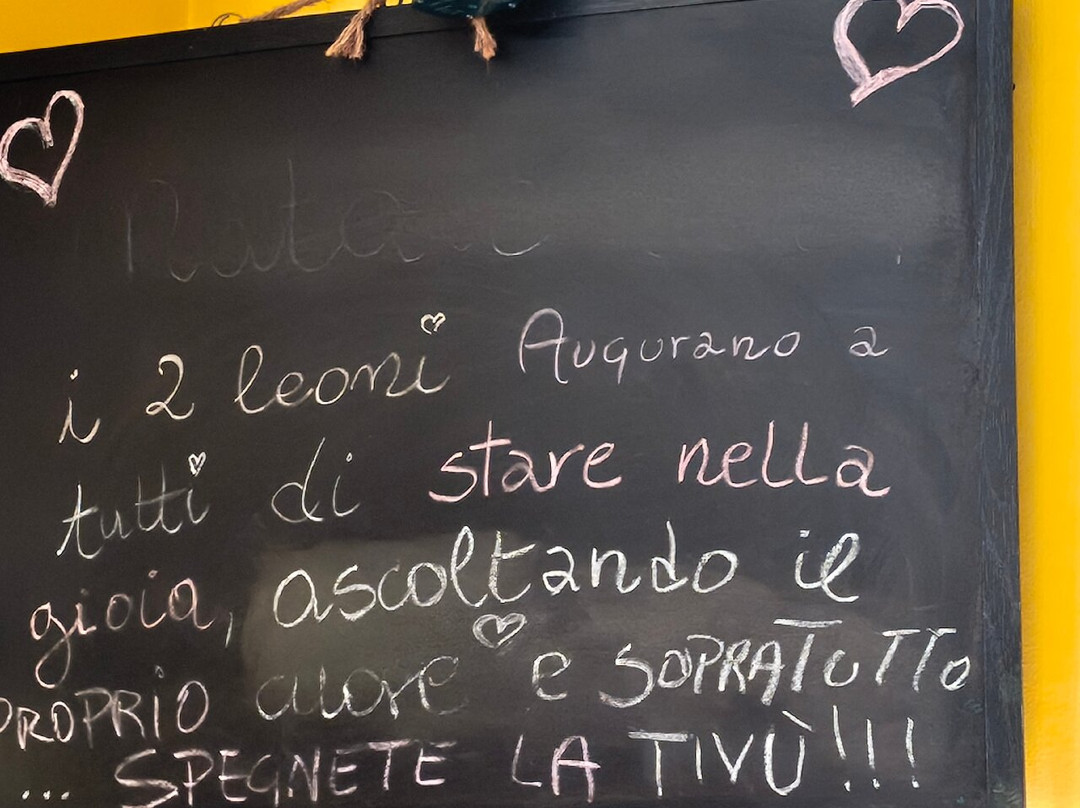 i 2 leoni Augurano a
tutti di stare nella
gioia, ascoltando il
PROPRIO cuore e SOPRATUTTO
... SPEGNETE LA TIVÙ!!!